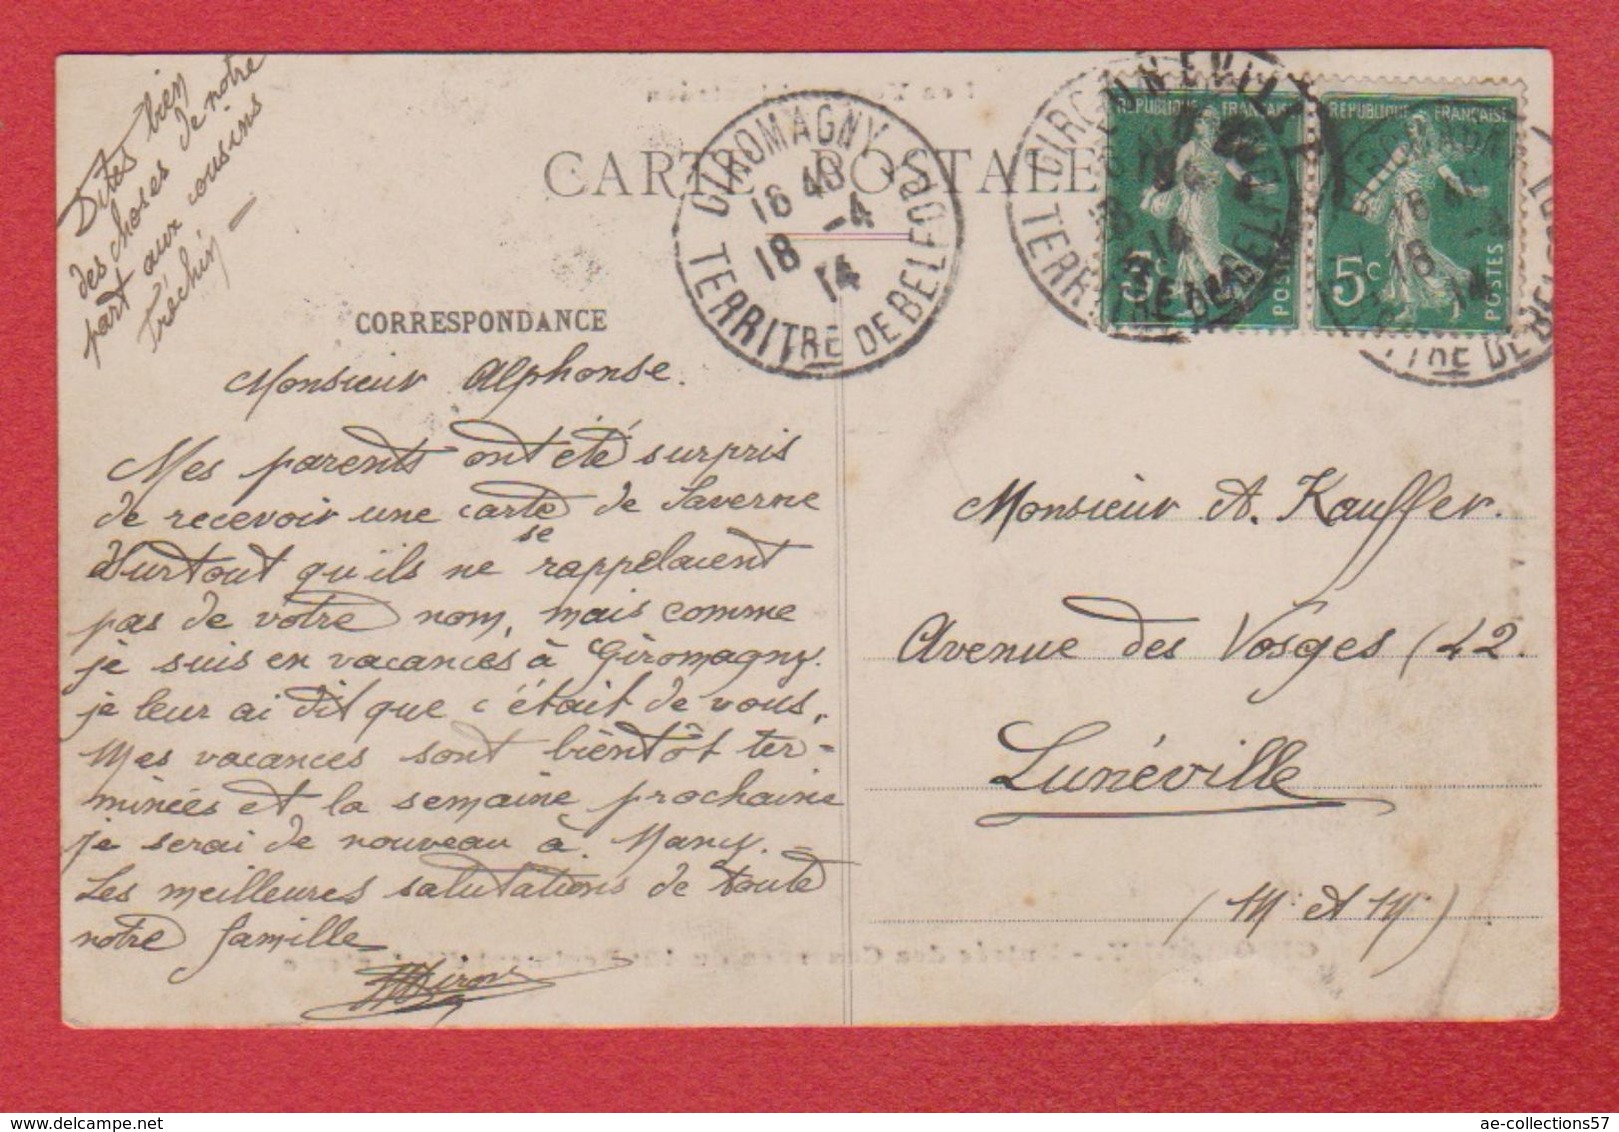 Dites bien
des choses de notre
part aux cousins
Tréchin
CARTE POSTALE
GIROMAGNY
16 45
18 -4
14
TERRITRE DE BELFORT
REPUBLIQUE FRANÇAISE
5c
POSTES
REPUBLIQUE FRANÇAISE
5c
POSTES
CORRESPONDANCE
Monsieur Alphonse.
Mes parents ont été surpris
de recevoir une carte de Saverne
surtout qu'ils ne se rappelaient
pas de votre nom, mais comme
je suis en vacances à Giromagny.
je leur ai dit que c'était de vous.
Mes vacances sont bientôt ter=
minées et la semaine prochaine
je serai de nouveau à Nancy. =
Les meilleures salutations de toute
notre famille
Monsieur A. Kauffer.
Avenue des Vosges 42.
Lunéville
(M et M)
ae-collections57